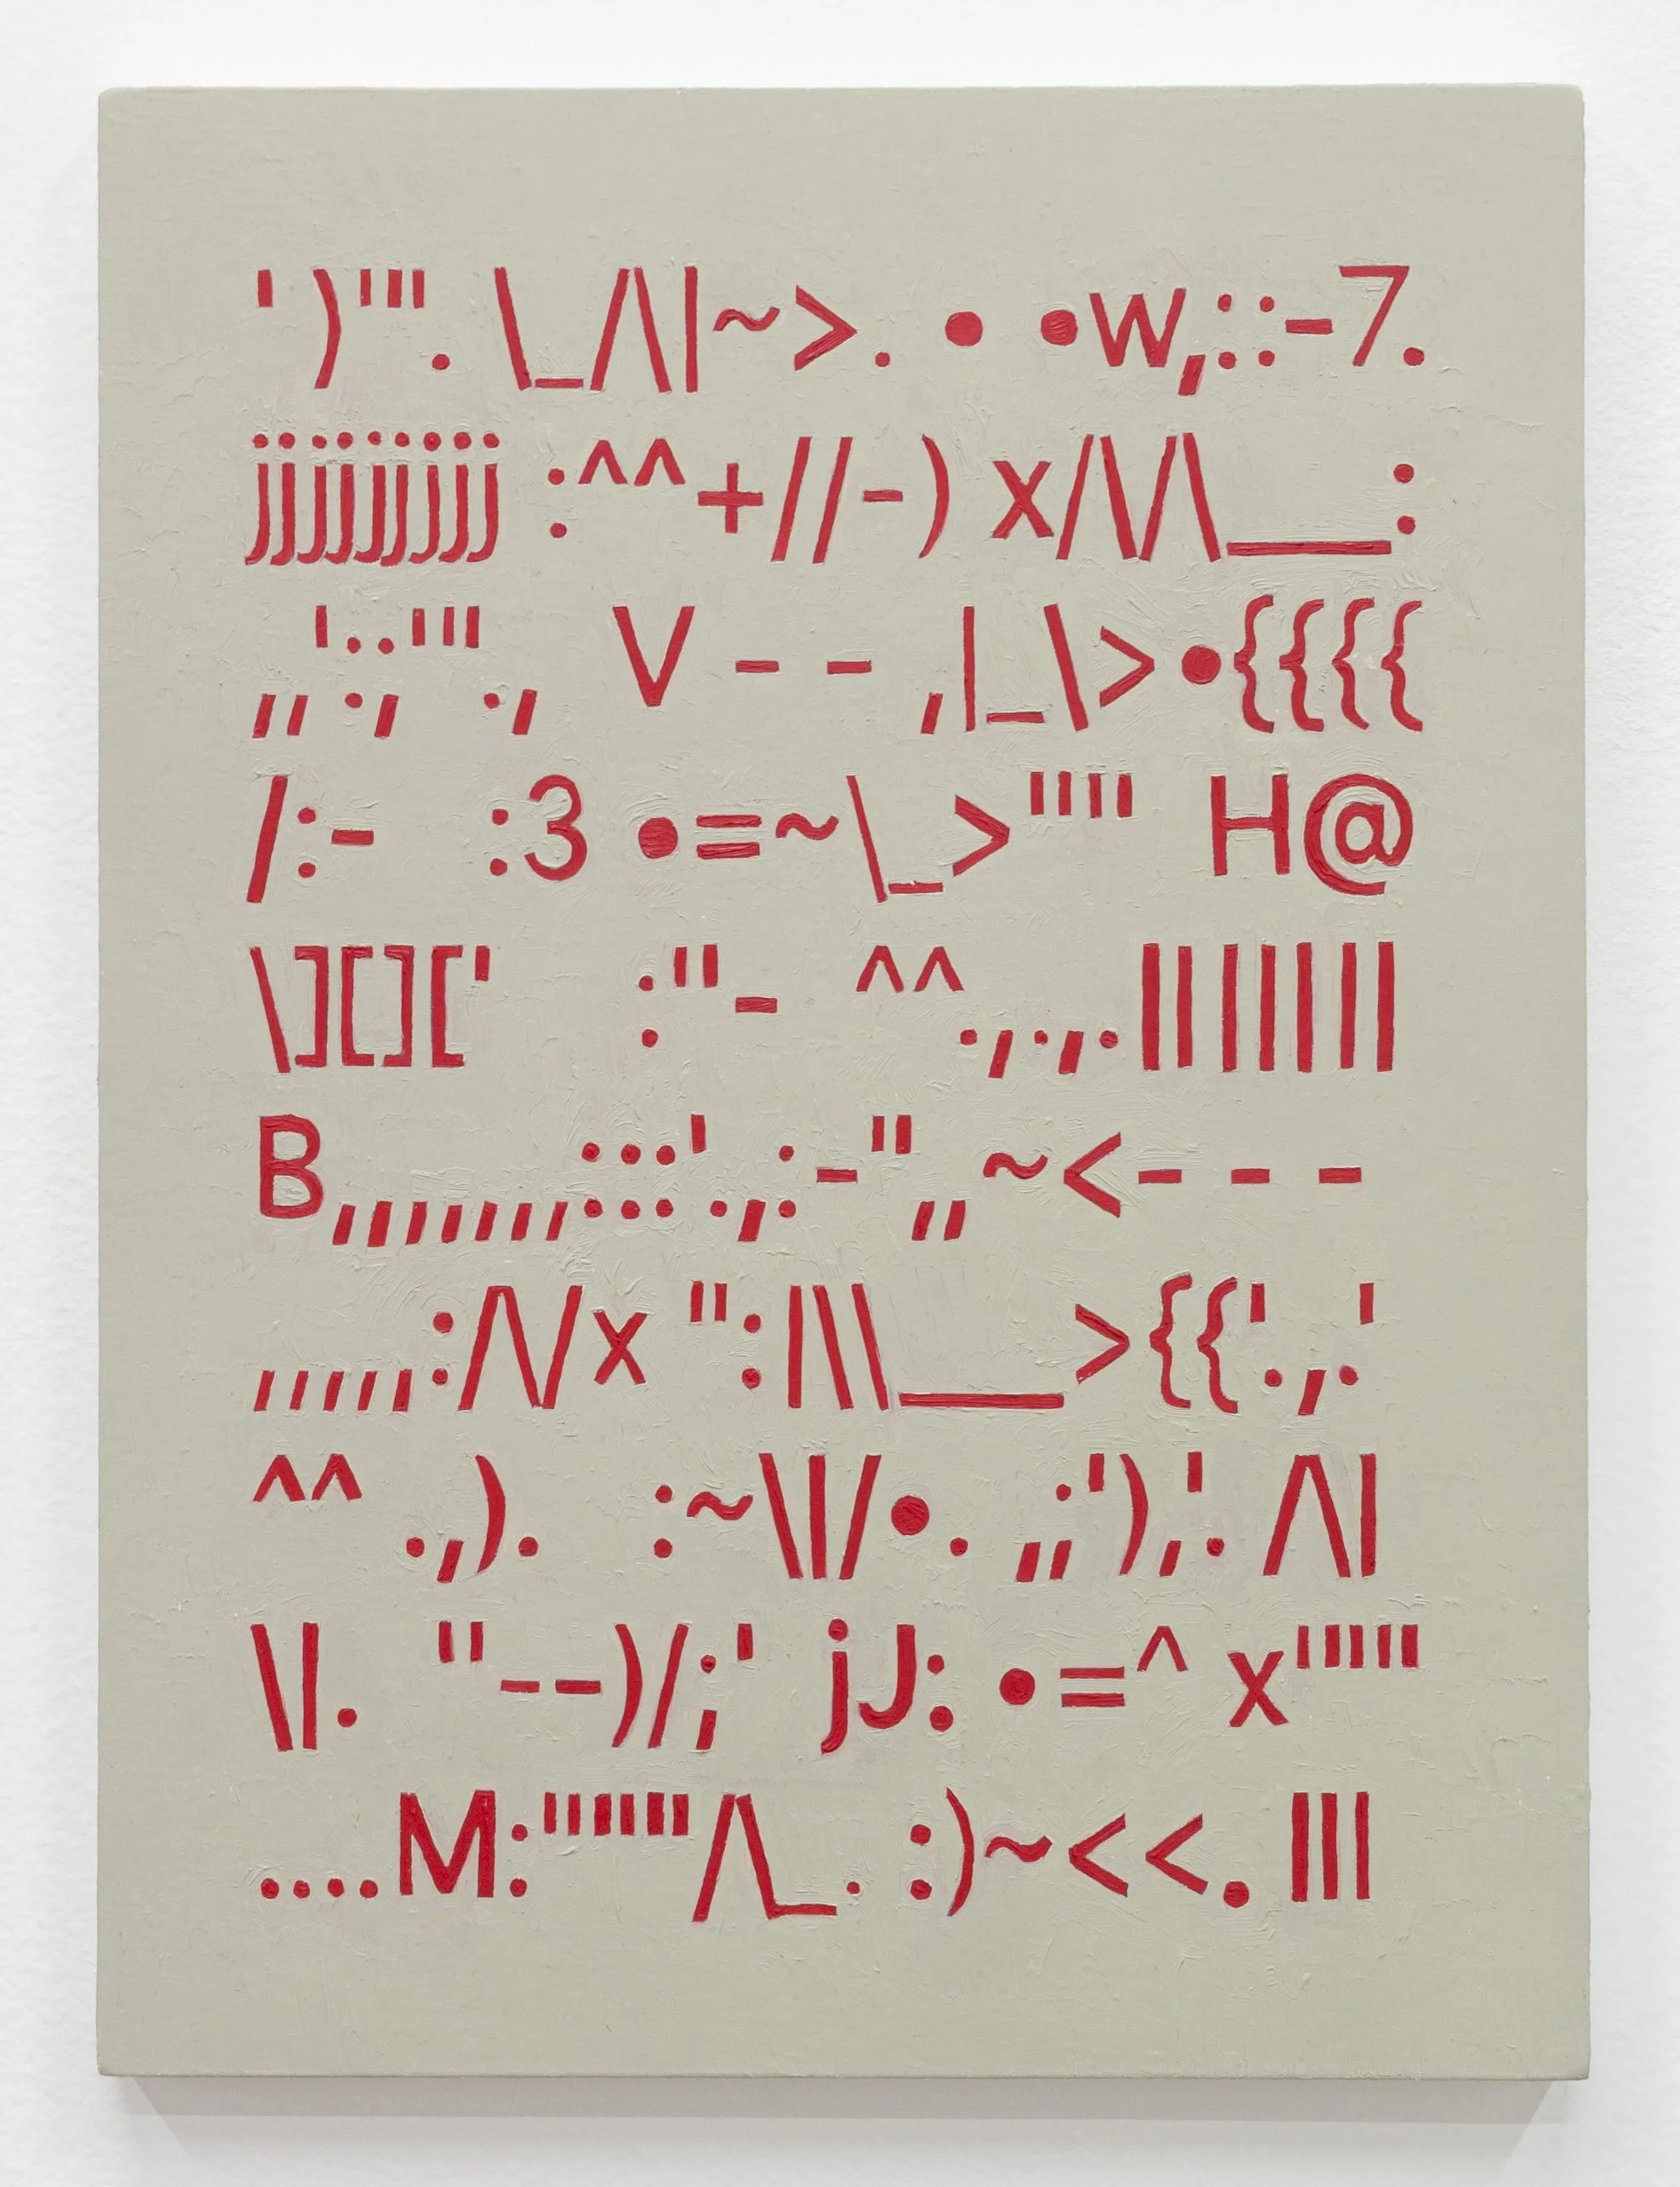 ' )'". \_/\|~>. • •w,::-7.
jjjjjjjjj :^^+//-) x/\/\___:
,,'.:,.'",., V - - ,|_\>•{{{{
/:- :3 •=~\_>"" H@
\][][' :"- ^^.,.,.|||||||
B,,,,,,,:::'.,:-",,~<- - -
,,,,,:/\/x ":|\\___>{{'.,.'
^^ .,). :~\|/•. ,;'),'. /\|
\|. "--)/;' jJ: •=^ x'""
....M:""""/\_. :)~<<. |||